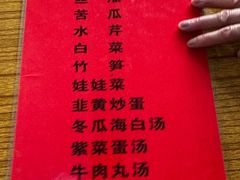 苦瓜
水芹
白菜
竹笋
娃娃菜
韭黄炒蛋
冬瓜海白汤
紫菜蛋汤
牛肉丸汤